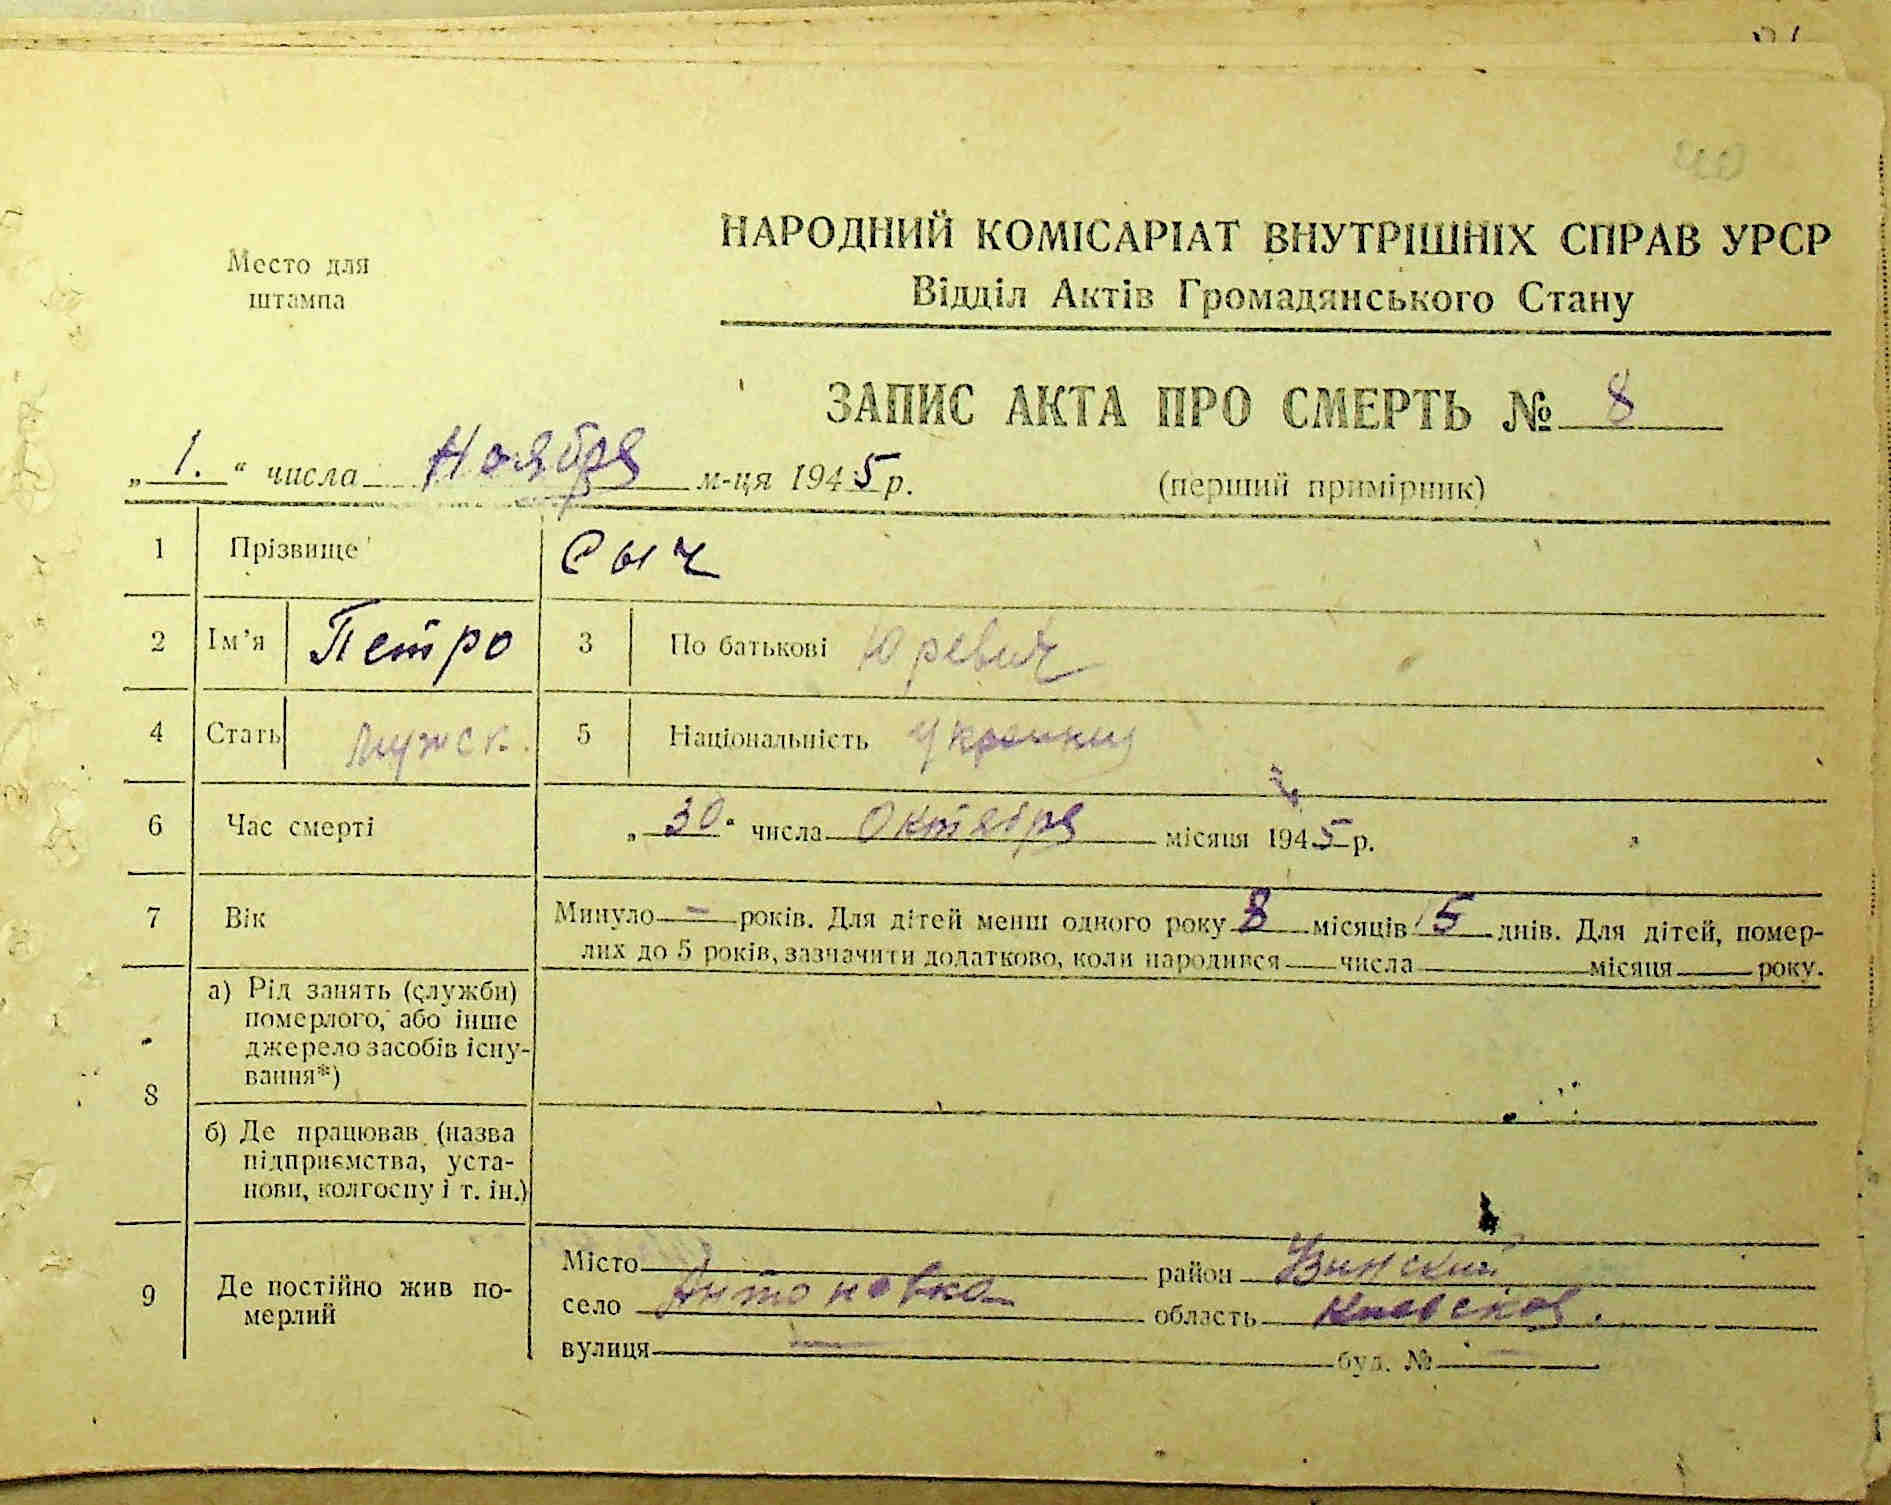 Место для
штампа
НАРОДНИЙ КОМІСАРІАТ ВНУТРІШНІХ СПРАВ УРСР
Відділ Актів Громадянського Стану
ЗАПИС АКТА ПРО СМЕРТЬ № 8
„ 1. “ числа Ноября м-ця 1945 р.
(перший примірник)
1 Прізвище Сыч
2 Ім’я Петро 3 По батькові Юревич
4 Стать мужск. 5 Національність
6 Час смерті „ 30 “ числа Октября місяця 1945 р.
7 Вік Минуло — років. Для дітей менш одного року 8 місяців 15 днів. Для дітей, помер-
лих до 5 років, зазначити додатково, коли народився числа місяця року.
8 а) Рід занять (служби)
померлого, або інше
джерело засобів існу-
вання*)
б) Де працював (назва
підприємства, уста-
нови, колгоспу і т. ін.)
9 Де постійно жив по-
мерлий
Місто район
село Антоновка область Киевская.
вулиця — буд. № —